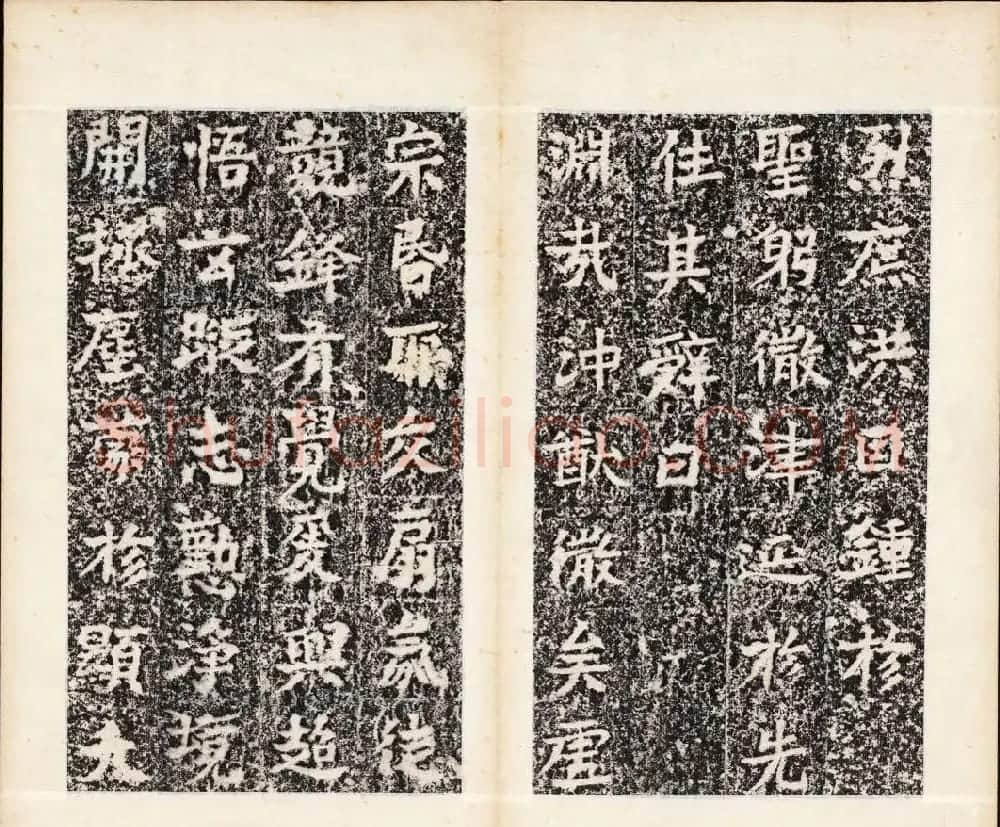 烈庶洪因鍾於
聖躬徽津延於先
佳其辭曰
淵哉沖猷微矣虛
宗昏交扇氛徒
競鋒有覺爰興超
悟玄志懃淨境
開拯塵蒙於顯大
Shufaziliao.COM